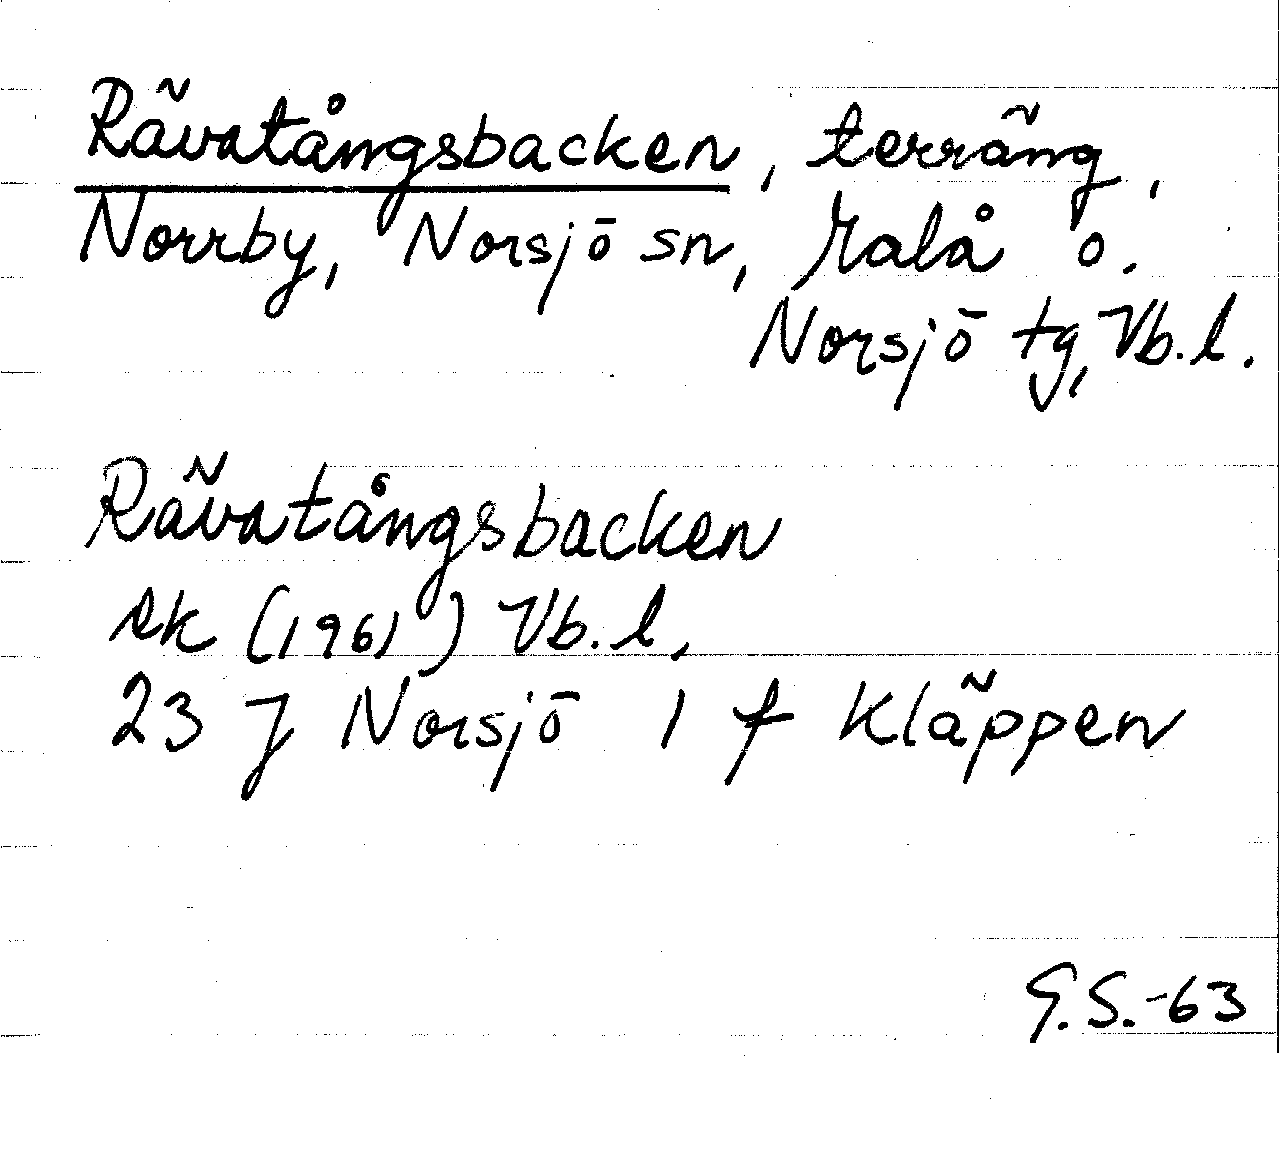 Rävatångsbacken, terräng,
Norrby, Norsjö sn, Malå o.
Norsjö tg, Vb.l.
Rävatångsbacken
ek (1961) Vb.l,
23 J Norsjö 1 f Kläppen
G.S.-63